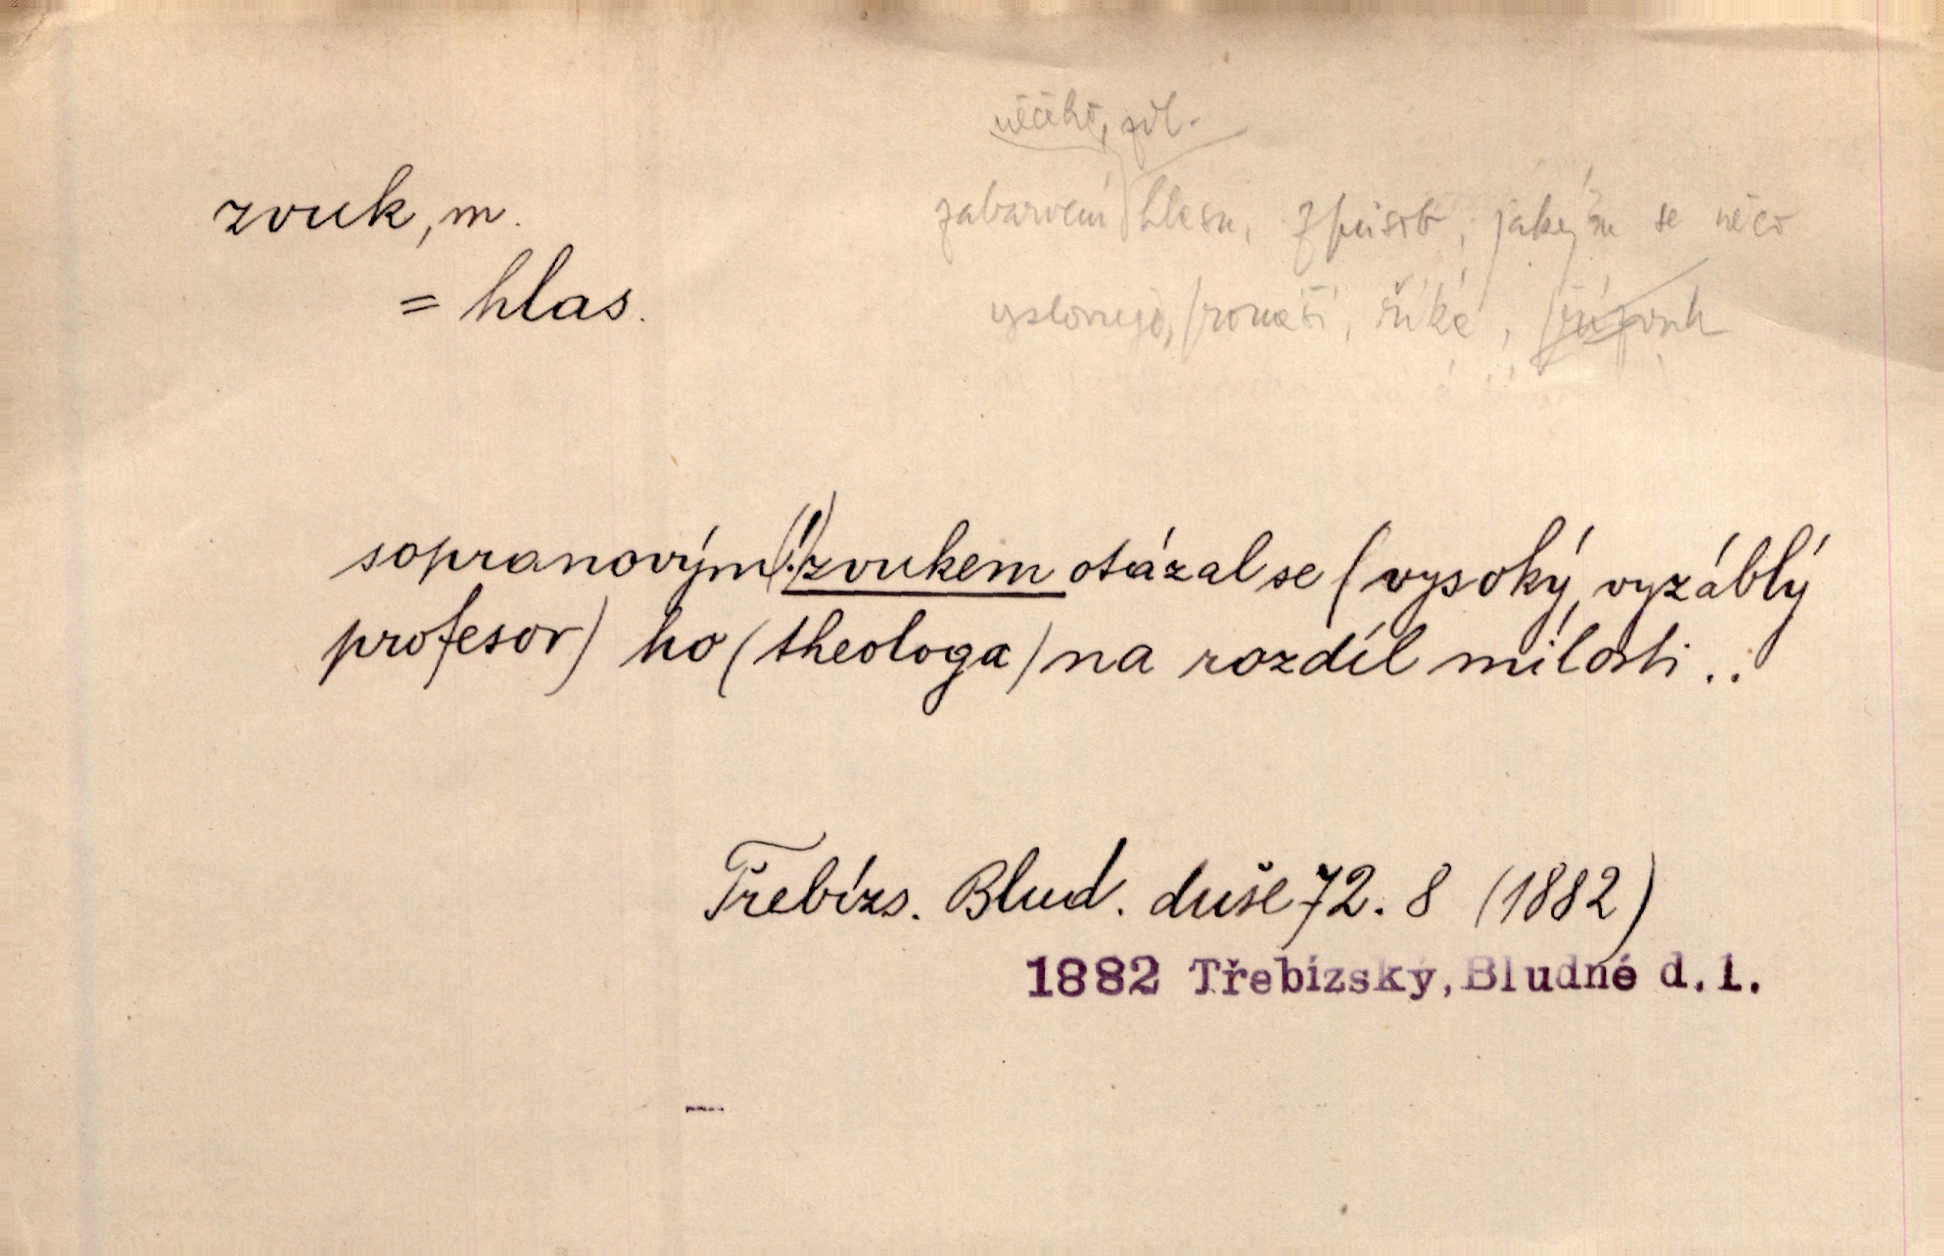 něčího, zvl.
zvuk, m.
zabarvení hlasu, způsob, jakým se něco
= hlas.
vyslovuje, pronáší, říká,
sopranovým (!) zvukem otázal se (vysoký, vyzáblý
profesor) ho (theologa) na rozdíl milosti ..
Třebízs. Blud. duše 72. 8 (1882)
1882 Třebízský, Bludné d. 1.